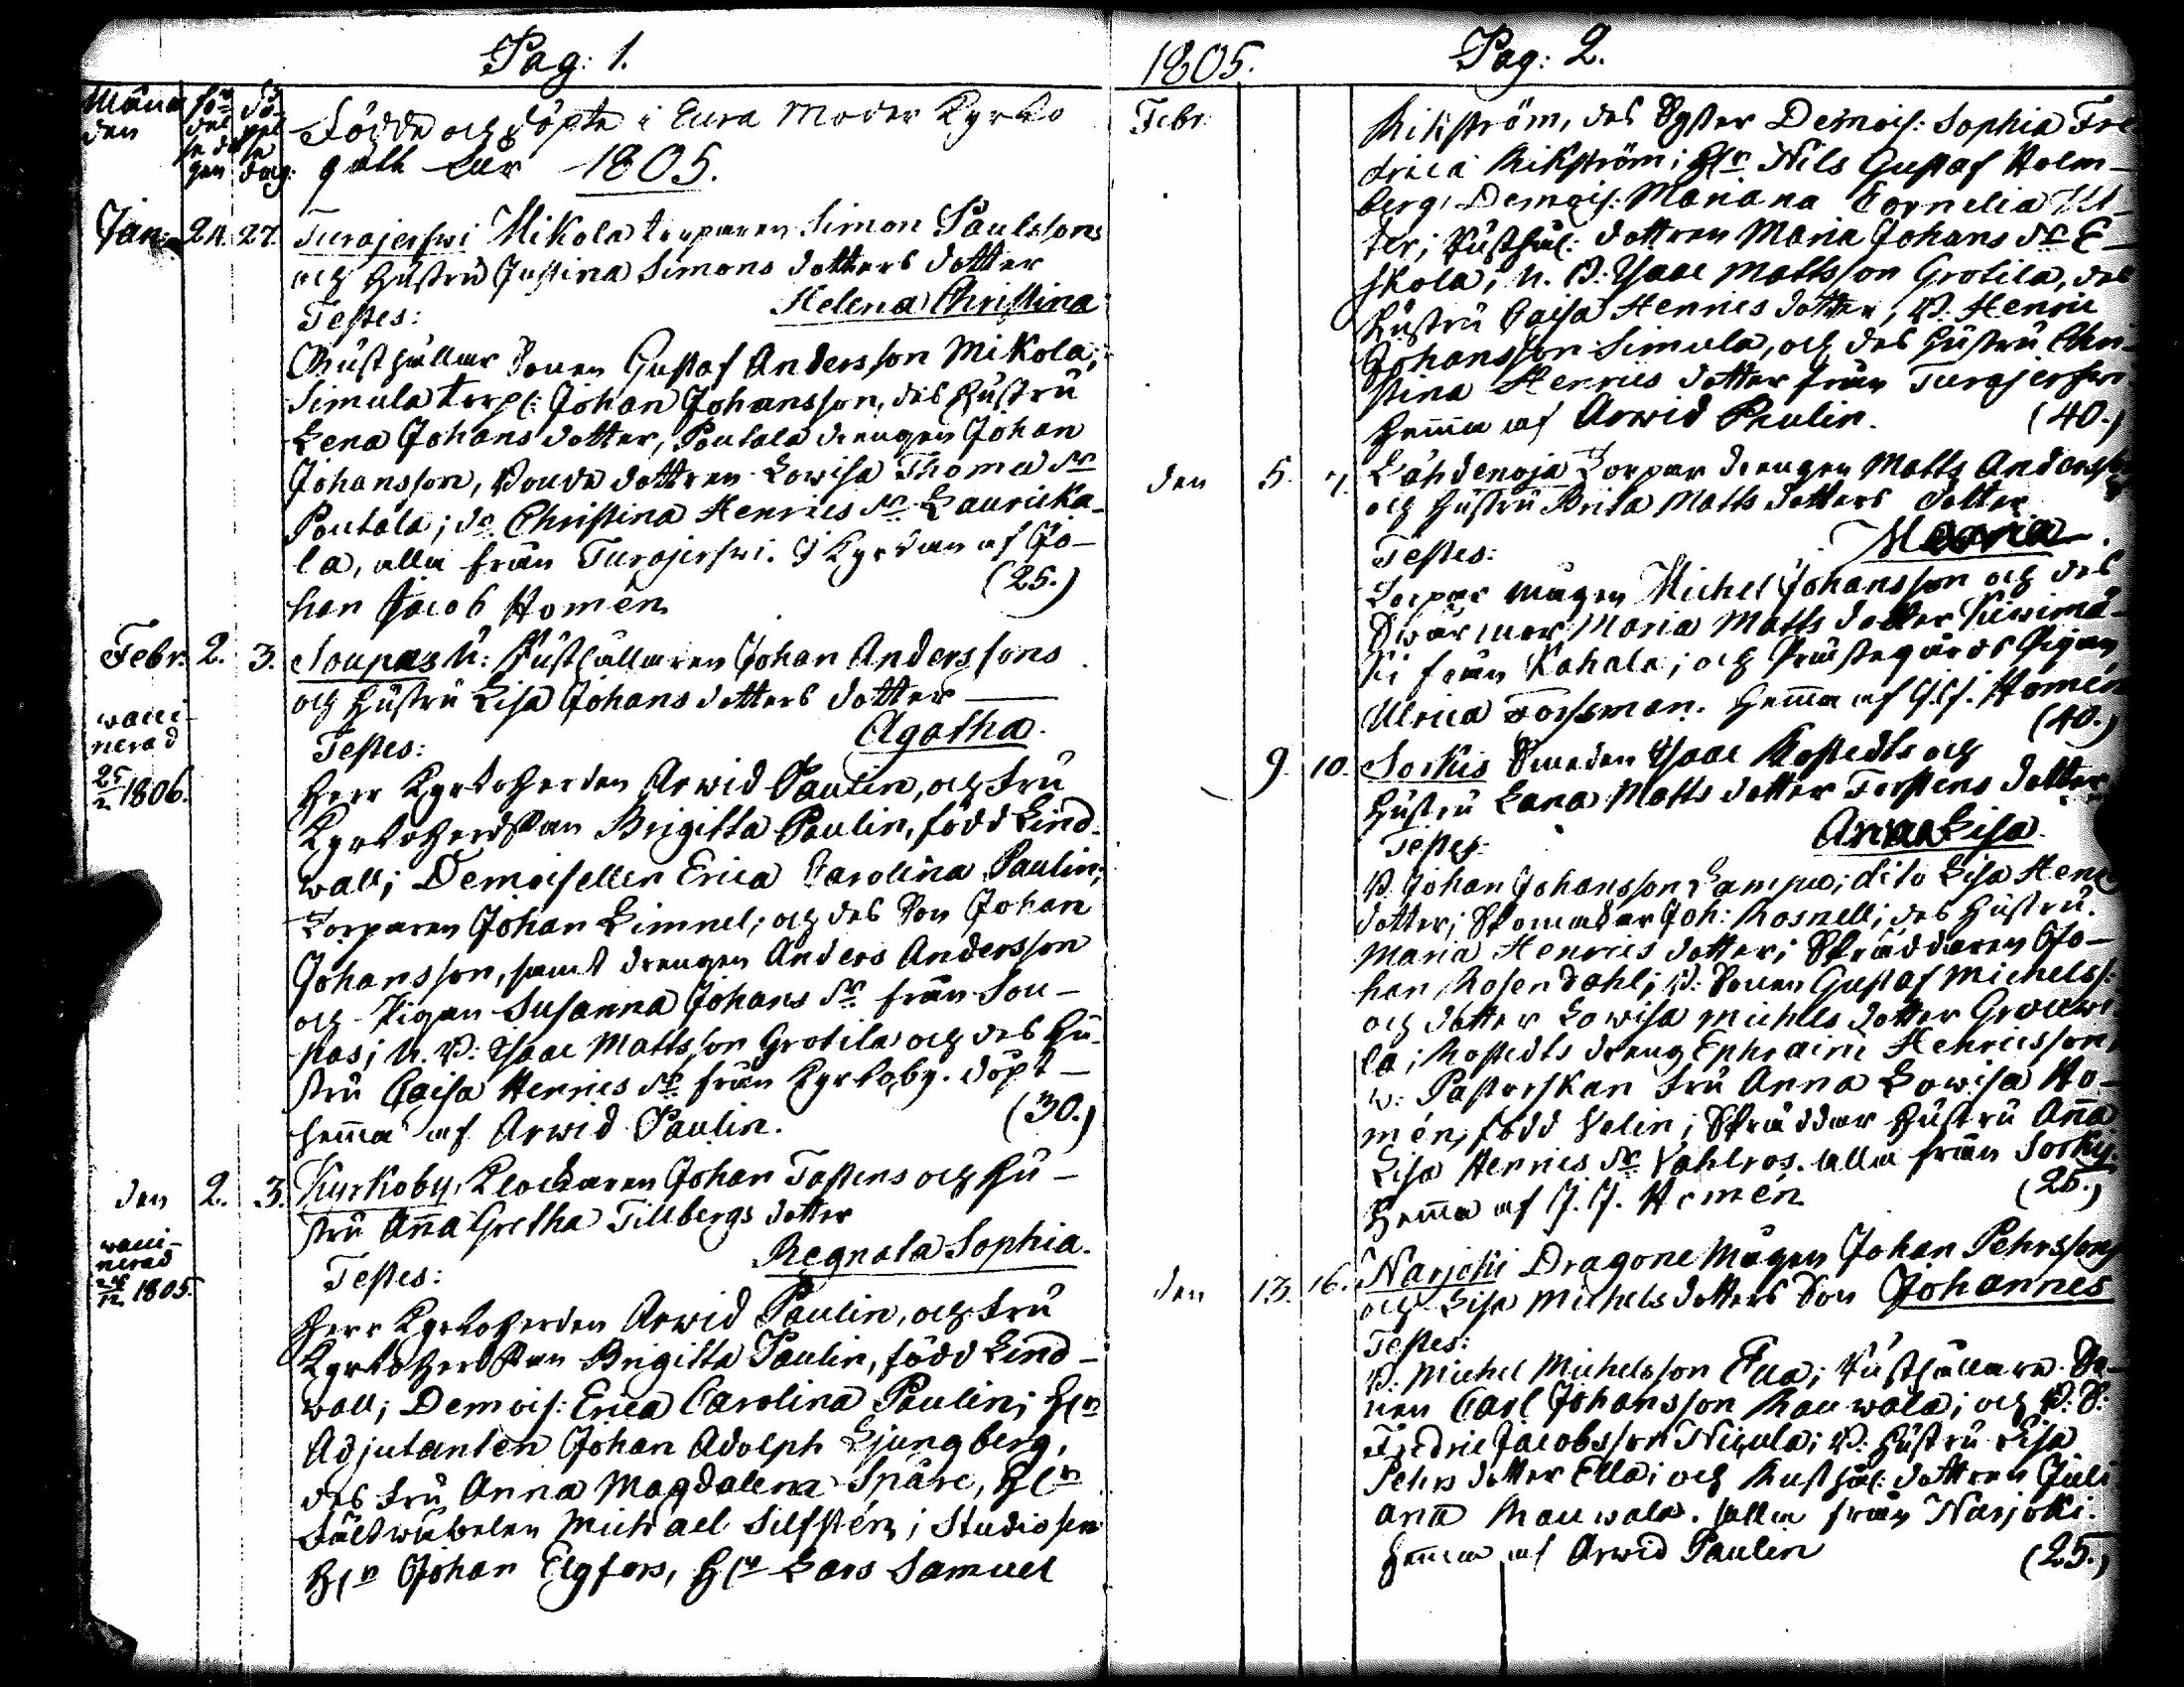 Pag: 1.
Måna
den
Fö-
del
se da
gen
Dö-
pel
se
dag:
Födde och döpte i Eura Moder Kyrko
gäll år 1805.
Jan: 24. 27. Turajerfwi Mikola torparen Simon Paulssons
och hustru Justina Simons dotters dotter
Helena Christina
Testes:
Rusthållare Sonen Gustaf Andersson Mikola;
Simula torp: Johan Johansson, des hustru
Lena Johans dotter, Poutala drengen Johan
Johansson, Bonde dottren Lowisa Thomæ dr
Poutala; do Christina Henrics dr Lauricka-
la, alla från Turajerfwi. I Kyrkan af Jo-
han Jacob Homén (25.)
Febr. 2. 3. Soupas N: Rusthållaren Johan Anderssons
och hustru Lisa Johans dotters dotter
Agatha.
wacci-
nerad
25/2 1806.
Testes:
Herr Kyrkoherden Arwid Paulin, och Fru
Kyrkoherdskan Brigitta Paulin, född Lind-
wall; Demoisellen Erica Carolina Paulin;
Torparen Johan Limnel; och des Son Johan
Johansson, samt drengen Anders Andersson
och Pigan Susanna Johans dr från Sou-
pas; N. B: Isaac Mattsson Grotila och des hu-
stru Caisa Henrics dr från Kyrkoby. döpt
hemma af Arwid Paulin. (30.)
den 2. 3. Kyrkoby, Klockaren Johan Tastens och hu-
stru Anna Gretha Tillbergs dotter
Regnata Sophia.
wacci-
nerad
1805.
Testes:
Herr Kyrkoherden Arwid Paulin, och Fru
Kyrkoherdskan Brigitta Paulin, född Lind-
wall; Demois: Erica Carolina Paulin; Hrn
Adjutanten Johan Adolph Ljungberg,
des Fru Anna Magdalena Spåre, Hrn
Fältwäbelen Michael Silfstén; Studiosen
Hrn Johan Elgfors, Hrn Lars Samuel
1805. Pag: 2.
Febr.
Rikström, des Syster Demois: Sophia Fre
drica Rikström; Hrn Nils Gustaf Holm-
berg, Demois: Mariana Cornelia Ut-
ter; Rusthål: dottren Maria Johans dr E-
skola; N. B: Isaac Mattsson Grotila, des
hustru Caisa Henrics dotter, B. Henric
Johansson Simula, och des hustru Chri-
stina Henrics dotter från Turajerfwi
hemma af Arwid Paulin. (40.)
den 5. 7. Lähdenoja Torpar drengen Matts Andersso
och hustru Brita Matts dotters dotter
Maria.
Testes:
Torpar mågen Michel Johansson och des
Swärmor Maria Matts dotter Kiwimä-
ki från Kahala; och Prästegårds Pigan
Ulrica Forssman. hemma af J. J. Homén
(40.)
9. 10. Sorkis Smeden Isaac Rostedts och
hustru Lana Matts dotter Forstens dotter
Anna Lisa
Testes:
B. Johan Johansson Lampu; dito Lisa Henr
dotter; Skomakar Joh: Rosnell; des hustru
Maria Henrics dotter; Skräddaren Jo-
han Rosendahl; B: Sonen Gustaf Michelss:
och dotter Lowisa Michels dotter Grouwi
la; Rostedts dreng Ephraim Henricsson,
w: Pastorskan Fru Anna Lowisa Ho-
mén, född Velin; Skräddar hustru Anna
Lisa Henrics dr Vahlros. alla från Sorkis.
Hemma af J. J. Homén (25.)
den 13. 16. Narjoki Dragone Mågen Johan Pehrssons
och Lisa Michels dotters Son Johannes
Testes:
B. Michel Michelsson Ella; Rusthållare So-
nen Carl Johansson Rauwola; och B: S:
Fredric Jacobsson Nigula; B. hustru Lisa
Pehrs dotter Ella; och Rusthål: dottren Juli
ana Rauwola. alla från Narjoki.
hemma af Arwid Paulin (25.)